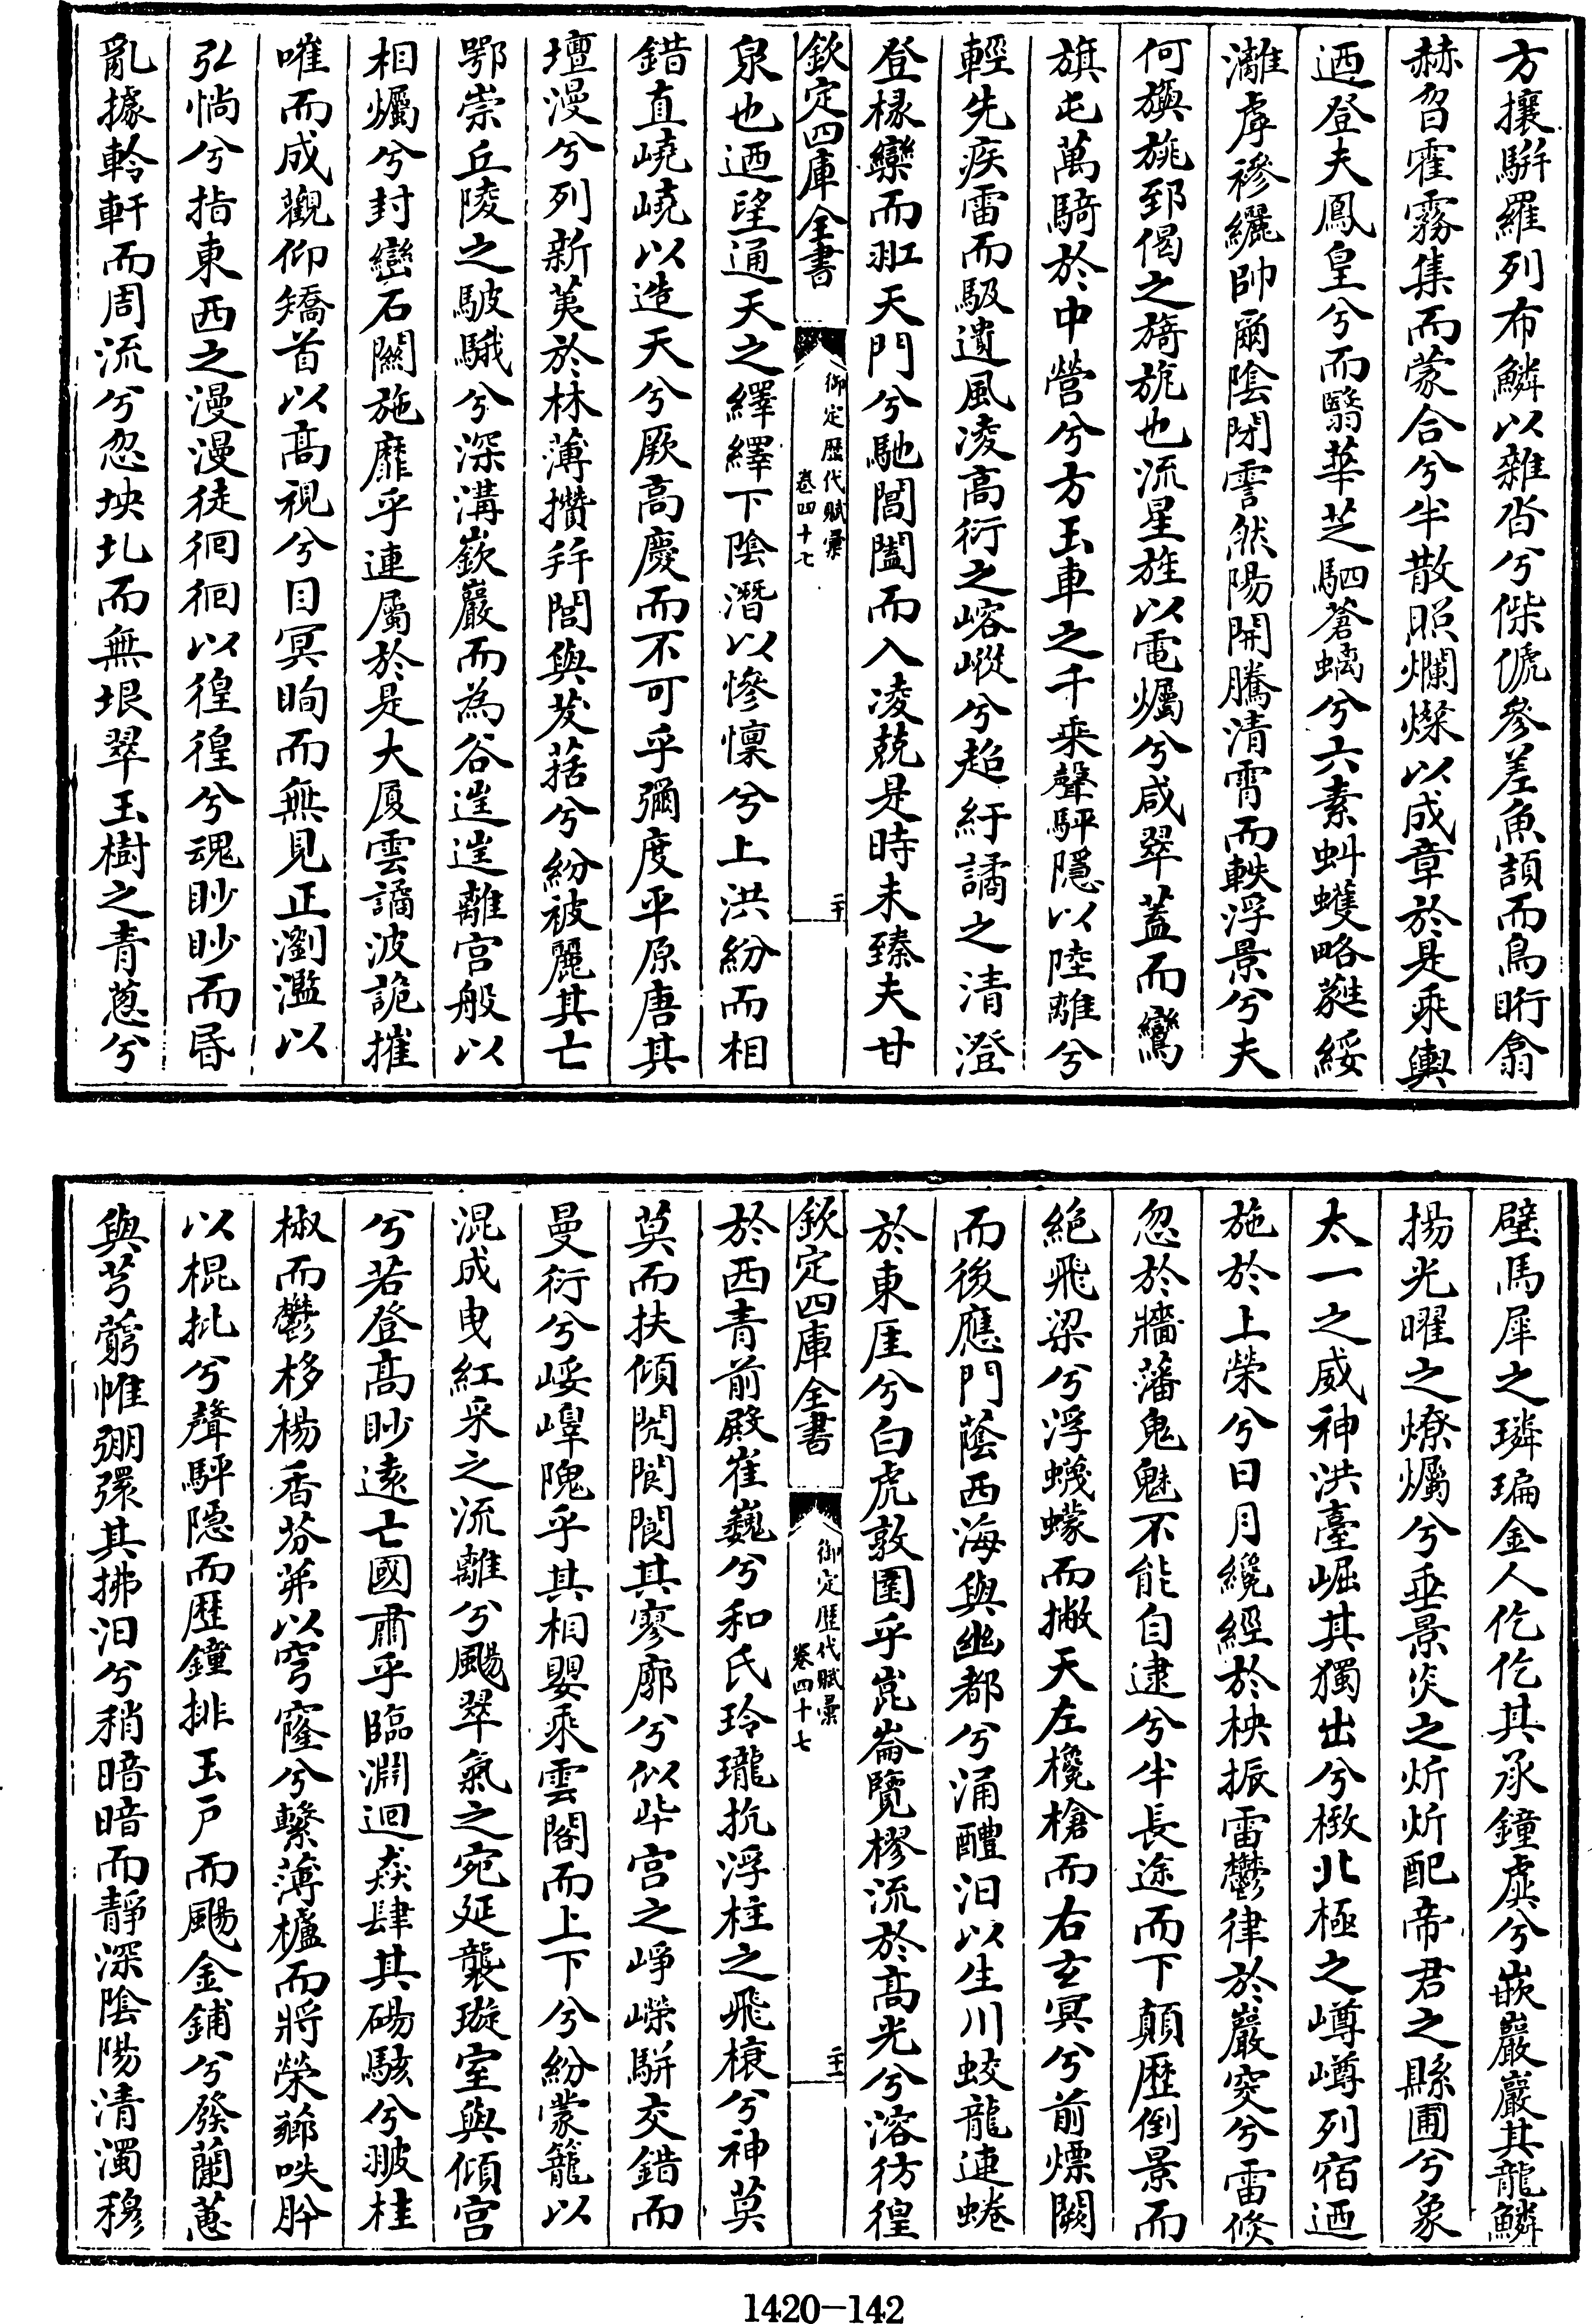 方攘駢羅列布鱗以雜沓兮傂傂參差魚頡而鳥䀪翕
赫曶霍霧集而蒙合兮半散照爛燦以成章於是乘輿
迺登夫鳳皇兮而翳華芝駟蒼螭兮六素虯蠖略蕤綏
灕虖襂纚帥爾陰閉霅然陽開騰清霄而軼浮景兮夫
何旟旐郅偈之旖旎也流星旄以電爥兮咸翠蓋而鸞
旗屯萬騎於中營兮方玉車之千乘聲駍隱以陸離兮
輕先疾雷而馺遺風凌高衍之嵱嵷兮超紆譎之清澄
登椽欒而羾天門兮馳閶闔而入凌兢是時未臻夫甘
欽定四庫全書
御定歷代賦彙
卷四十七
二十
泉也迺望通天之繹繹下陰潛以慘懍兮上洪紛而相
錯直嶢嶢以造天兮厥高慶而不可乎彌度平原唐其
壇漫兮列新荑於林薄攢幷閭與茇葀兮紛被麗其亡
鄂崇丘陵之駊騀兮深溝嶔巖而為谷迬迬離宮般以
相爥兮封巒石關施靡乎連屬於是大厦雲譎波詭摧
嗺而成觀仰矯首以高視兮目冥眴而無見正瀏濫以
弘惝兮指東西之漫漫徒徊徊以徨徨兮魂眇眇而昏
亂據軨軒而周流兮忽坱圠而無垠翠玉樹之青蔥兮
璧馬犀之璘㻞金人仡仡其承鐘虡兮嵌巖巖其龍鱗
揚光曜之燎爥兮垂景炎之炘炘配帝君之縣圃兮象
太一之威神洪臺崛其獨出兮㨖北極之嶟嶟列宿迺
施於上榮兮日月纔經於柍桭雷鬱律於巖突兮雷倏
忽於牆藩鬼魅不能自逮兮半長途而下顛歷倒景而
絶飛梁兮浮蠛蠓而撇天左欃槍而右玄冥兮前熛闕
而後應門蔭西海與幽都兮涌醴汩以生川蛟龍連蜷
於東厓兮白虎敦圉乎崑崙覽樛流於高光兮溶彷徨
欽定四庫全書
御定歷代賦彙
卷四十七
二十一
於西青前殿崔巍兮和氏玲瓏抗浮柱之飛榱兮神莫
莫而扶傾閌閬閬其寥廓兮似紫宮之崢嶸駢交錯而
曼衍兮㟎嶵隗乎其相嬰乘雲閣而上下兮紛蒙籠以
混成曳紅采之流離兮颺翠氣之宛延襲琁室與傾宮
兮若登高眇遠亡國肅乎臨淵迴猋肆其碭駭兮翍桂
椒而鬱栘楊香芬茀以穹窿兮擊薄櫨而將榮薌呹肸
以棍批兮聲駍隱而歷鐘排玉戶而颺金鋪兮發蘭蕙
與芎藭帷弸彋其拂汩兮稍暗暗而靜深陰陽清濁穆
1420-142